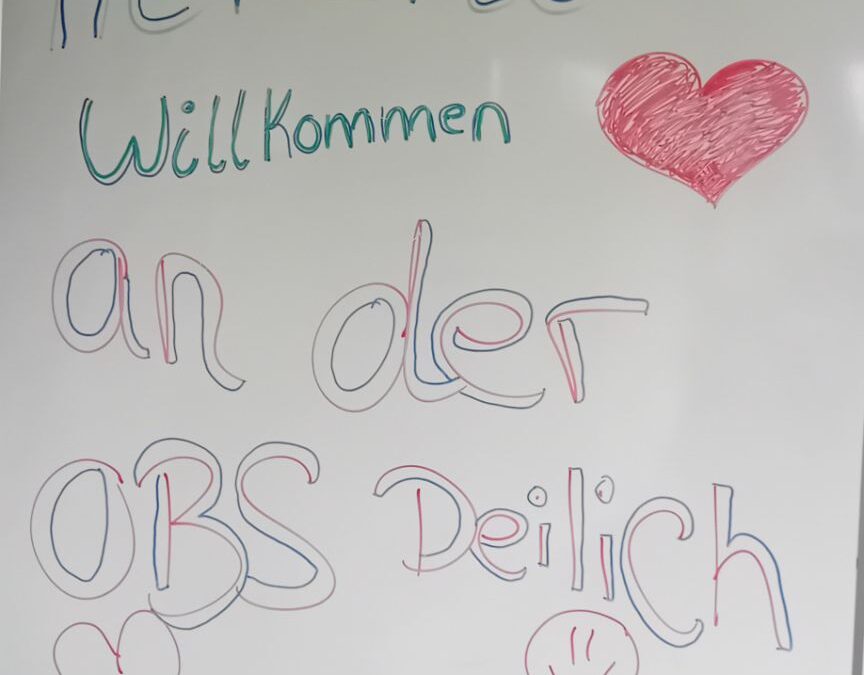 Willkommen
an der
OBS Deilich